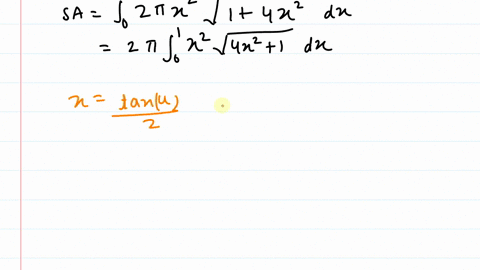 SA = ∫₀ 2πx² √1+4x² dx
= 2π ∫₀¹ x² √4x²+1 dx
x = tan(u)/2